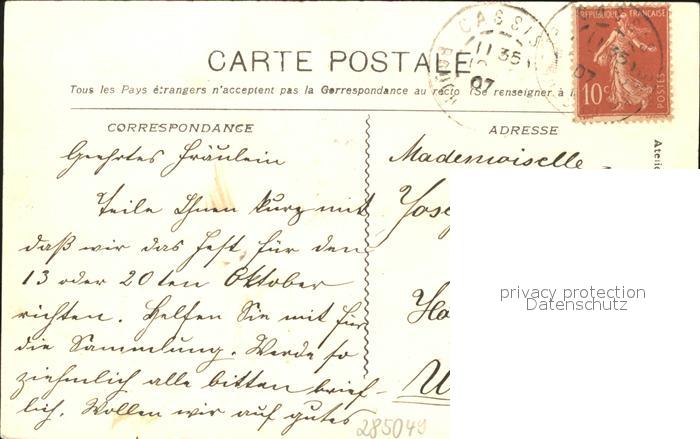 CARTE POSTALE
Tous les Pays étrangers n'acceptent pas la Correspondance au recto (Se renseigner à l
CORRESPONDANCE
Geehrtes Fräulein
Teile Ihnen kurz mit
daß wir das Fest für den
13 oder 20ten Oktober
richten. Helfen Sie mit für
die Sammlung. Werde so
ziehmlich alle bitten brief-
lich. Wollen wir auf gutes
285049
ADRESSE
Mademoiselle
Jose
Ha
U
CASSIS
11 35
07
RÉPUBLIQUE FRANÇAISE
10c
POSTES
Atelie
privacy protection
Datenschutz